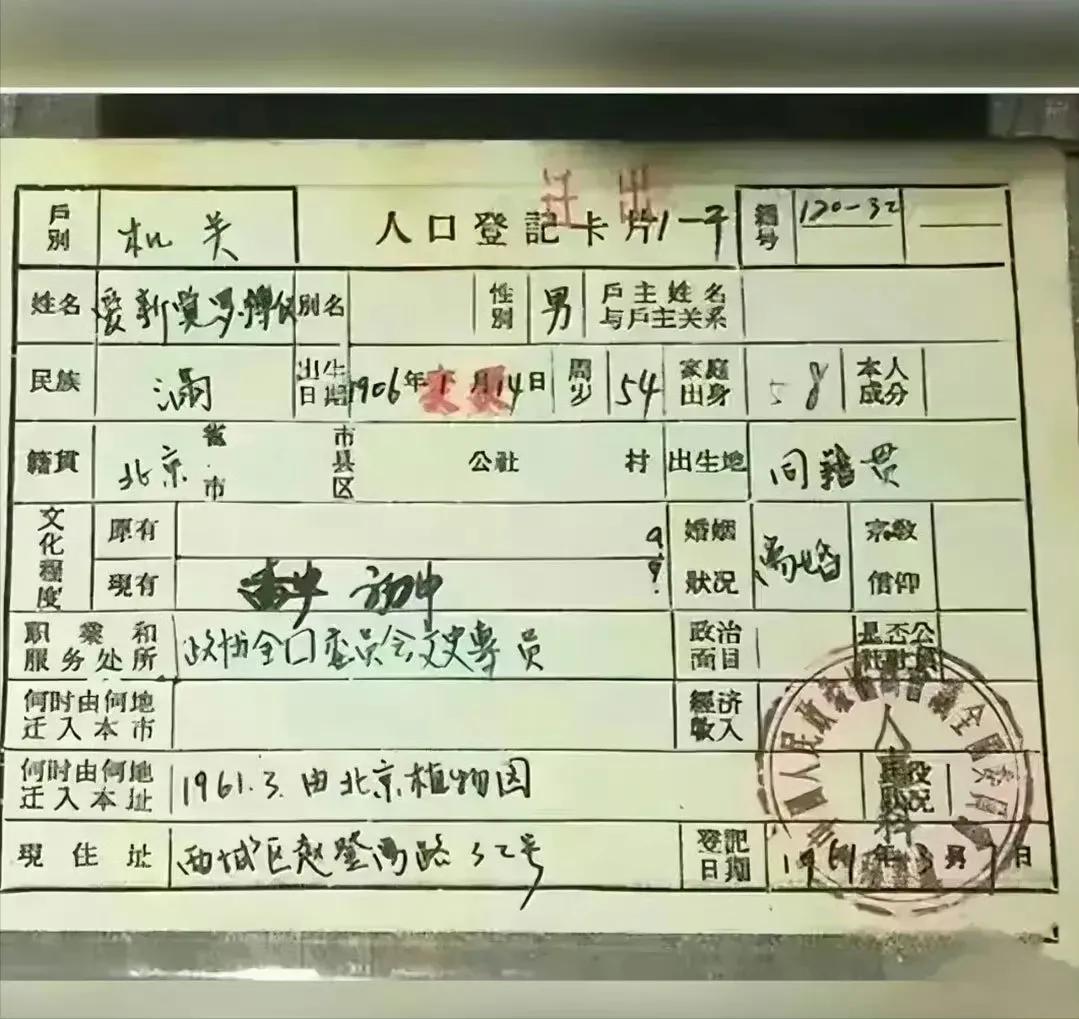 迁出
戶別 机关 人口登記卡片 1-干 編号 120-32
姓名 爱新覚罗溥仪 別名 性別 男 戶主姓名与戶主关系
民族 满 出生日期 1906年1月14日 变更 周岁 54 家庭出身 58 本人成分
籍貫 北京 省市 市县区 公社 村 出生地 同籍贯
文化程度 原有 婚姻狀况 离婚 宗教信仰
現有 初中
职業和服务处所 政协全囗委员会文史專员 政治面目 是否公社社員
何时由何地迁入本市 經济收入
何时由何地迁入本址 1961.3.由北京植物园 兵役狀况
現住址 西城区赵登禹路32号 登記日期 1961年3月 日
人民政治協商會議全國委員會
人事科